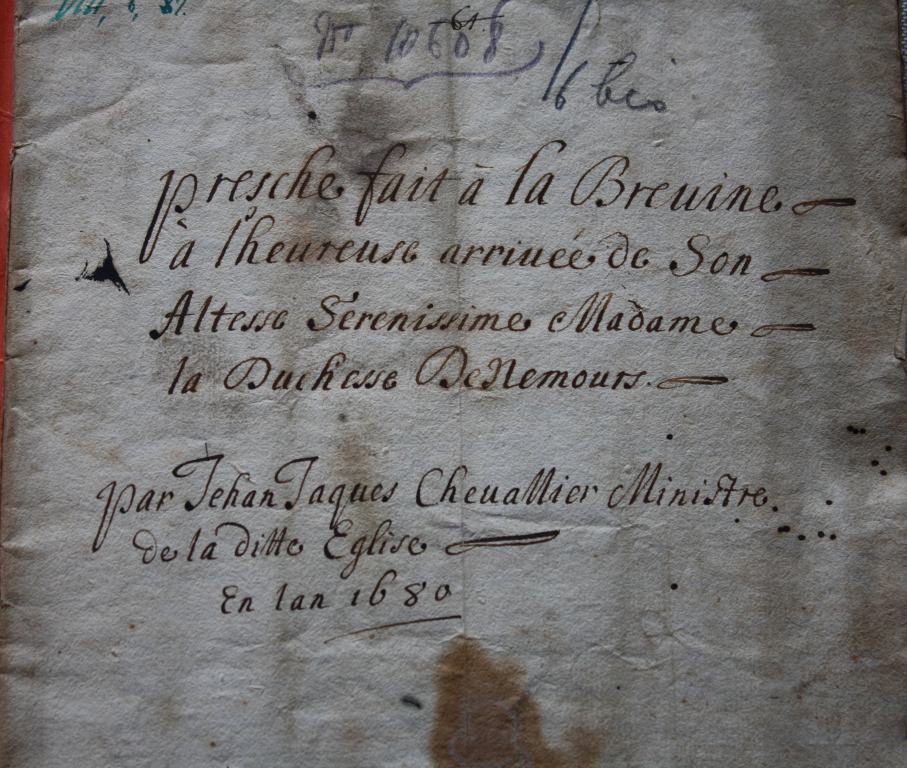 64.
N° 10608
6 bis
presche fait à la Breuine
à lheureuse arriuée de Son
Altesse Serenissime Madame
la Duchesse De Nemours.
par Jehan Jaques Cheuallier Ministre.
de la ditte Eglise
En lan 1680